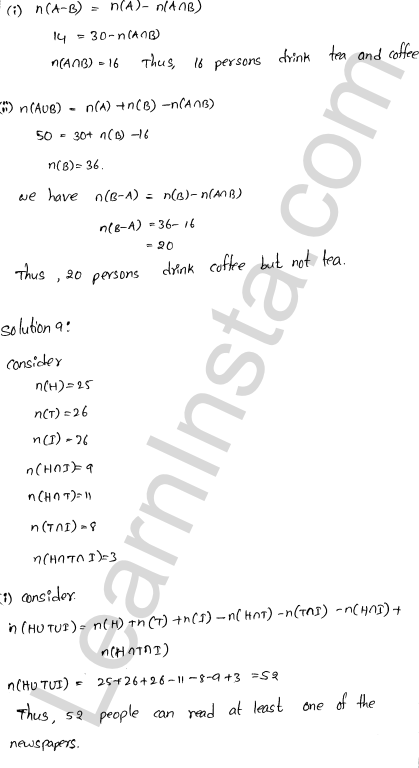 (i) n(A-B) = n(A)- n(A∩B)
14 = 30-n(A∩B)
n(A∩B) = 16 Thus, 16 persons drink tea and coffee
(ii) n(AUB) = n(A) +n(B) -n(A∩B)
50 = 30+ n(B) -16
n(B)= 36.
we have n(B-A) = n(B)-n(A∩B)
n(B-A) = 36- 16
= 20
Thus, 20 persons drink coffee but not tea.
Solution 9:
consider
n(H)=25
n(T)=26
n(I) = 26
n(H∩I)= 9
n(H∩T)=11
n(T∩I) = 8
n(H∩T∩I)=3
(i) consider
n(HUTUI)= n(H)+n(T)+n(I)-n(H∩T)-n(T∩I) -n(H∩I)+
n(H∩T∩I)
n(HUTUI) = 25+26+26-11-8-9+3 =52
Thus, 52 people can read at least one of the
newspapers.
LearnInsta.com